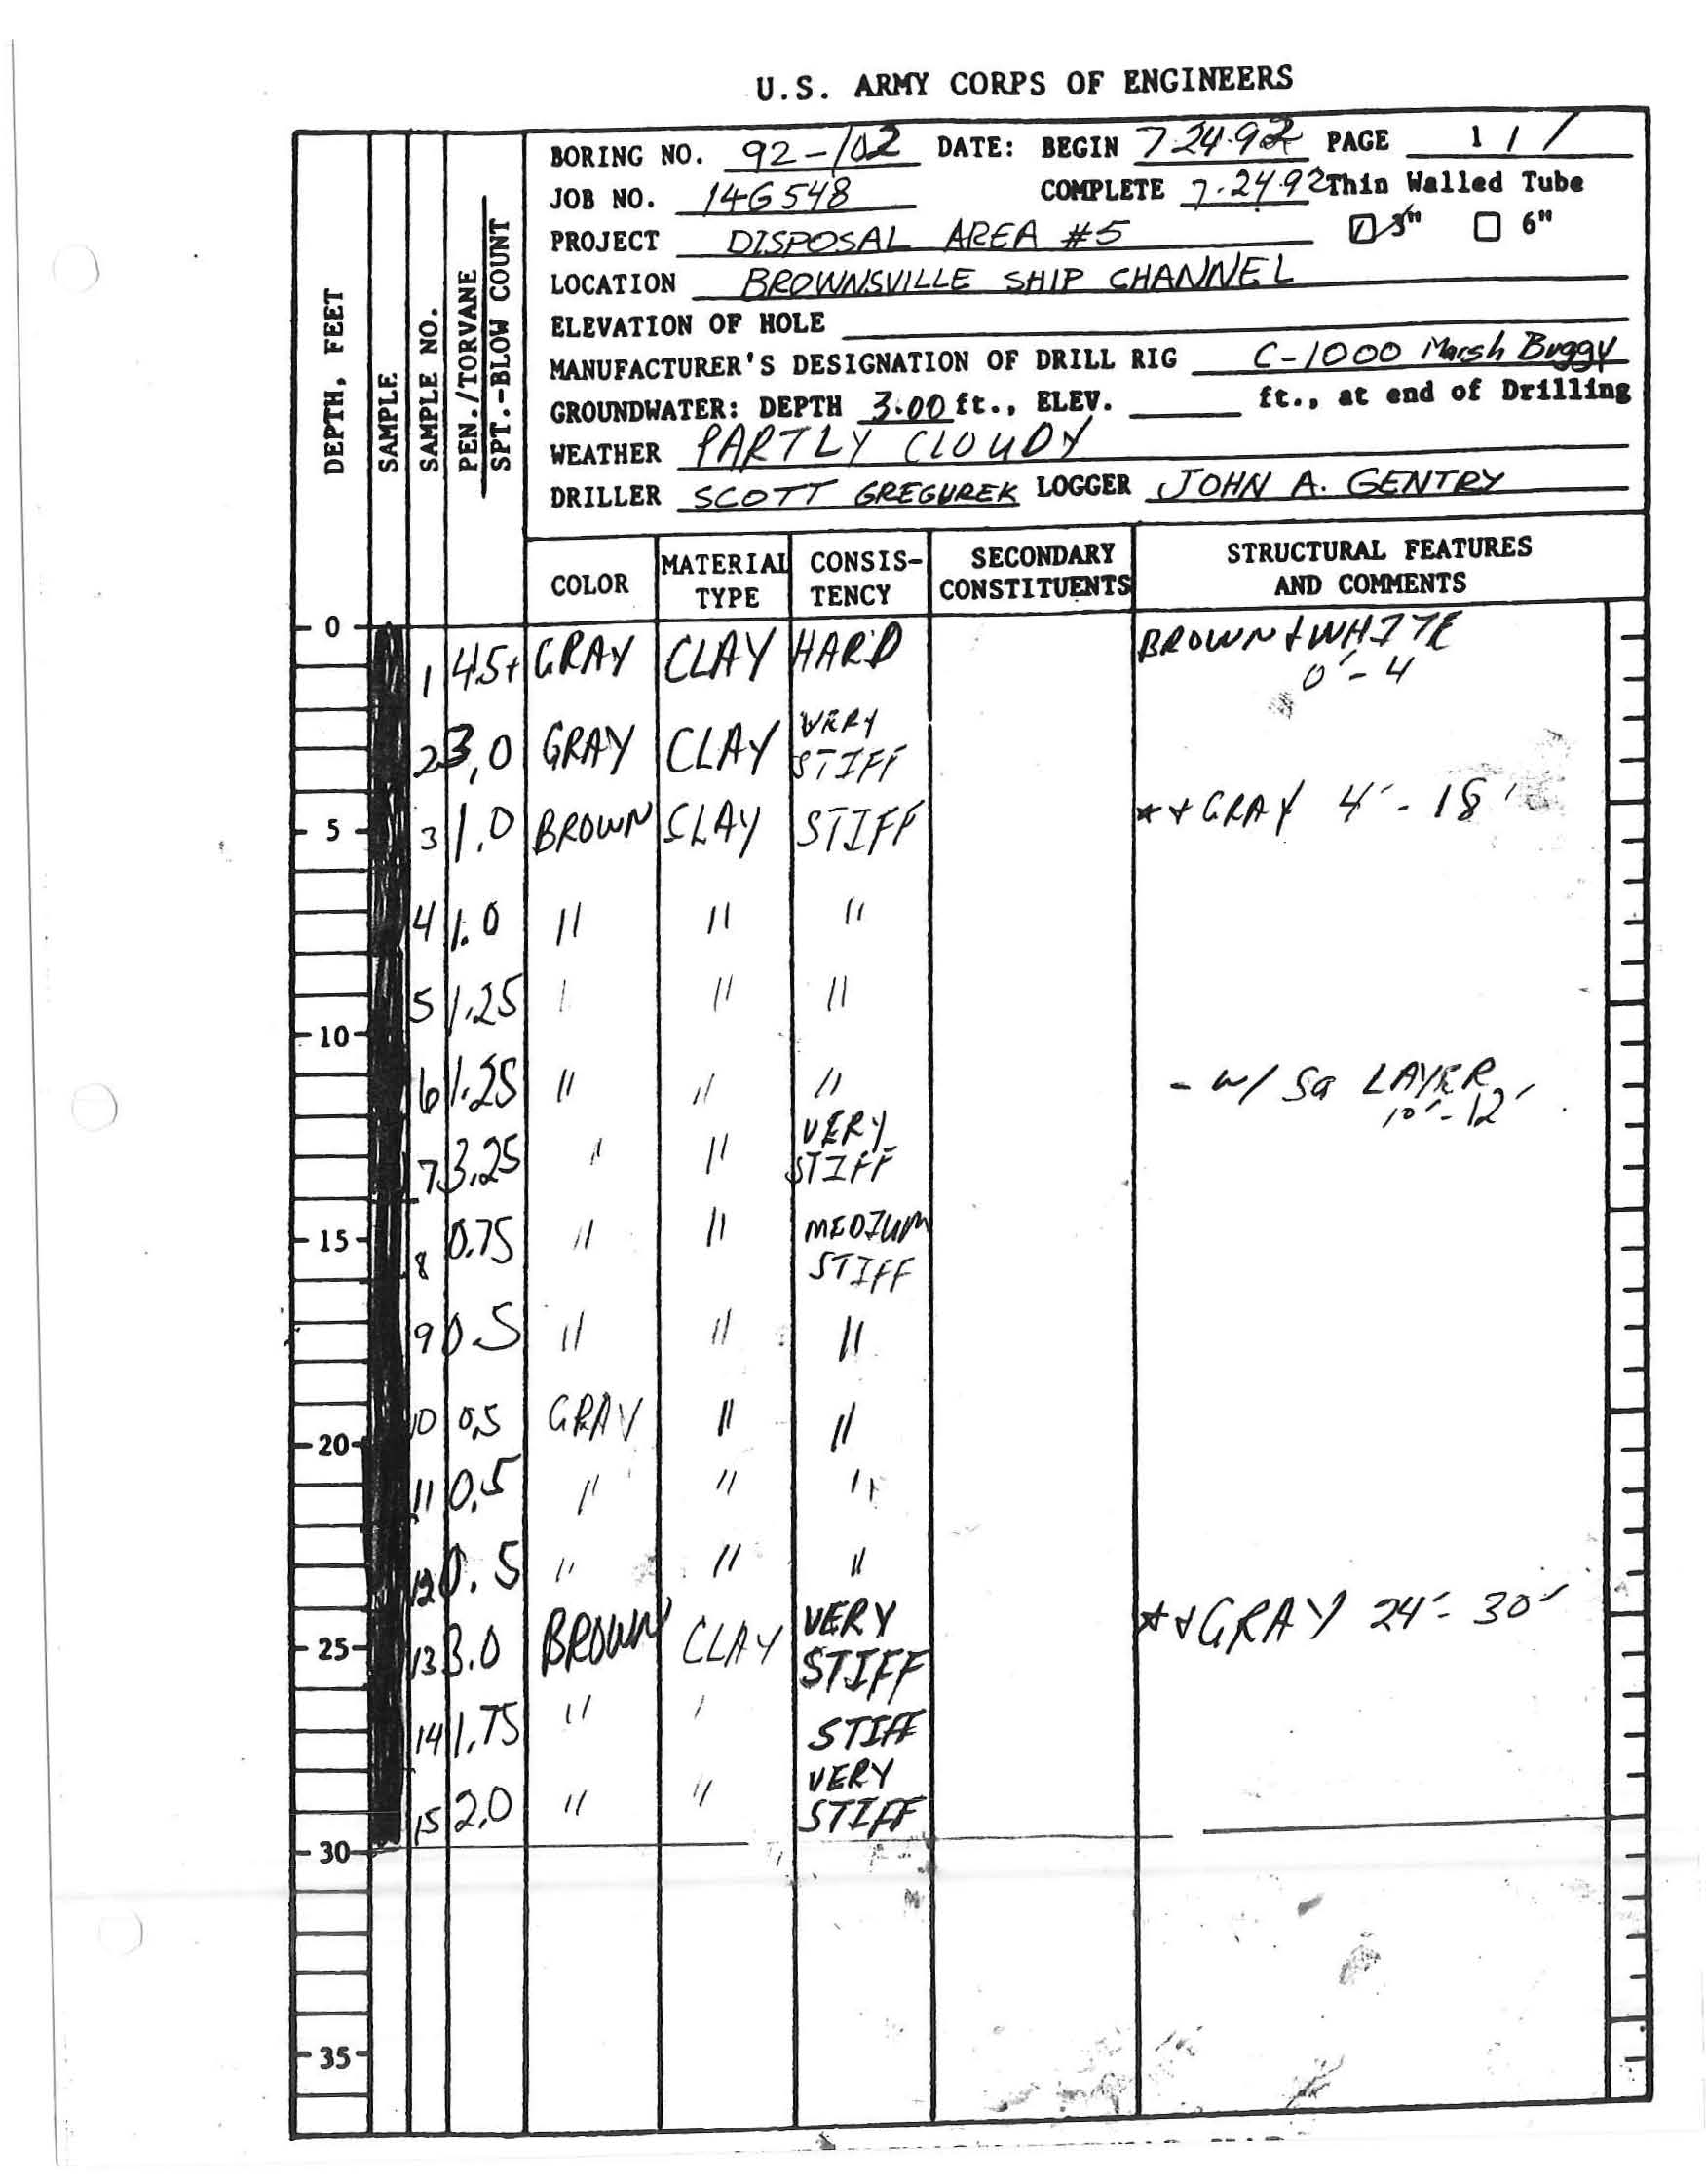 U.S. ARMY CORPS OF ENGINEERS
BORING NO. 92-102 DATE: BEGIN 7-24-92 PAGE 1 / 1
JOB NO. 14G548 COMPLETE 7-24-92 Thin Walled Tube
PROJECT DISPOSAL AREA #5 3" 6"
LOCATION BROWNSVILLE SHIP CHANNEL
ELEVATION OF HOLE
MANUFACTURER'S DESIGNATION OF DRILL RIG C-1000 Marsh Buggy
GROUNDWATER: DEPTH 3.00 ft., ELEV. ft., at end of Drilling
WEATHER PARTLY CLOUDY
DRILLER SCOTT GREGUREK LOGGER JOHN A. GENTRY
DEPTH, FEET
SAMPLE
SAMPLE NO.
PEN./TORVANE
SPT.-BLOW COUNT
COLOR
MATERIAL
TYPE
CONSIS-
TENCY
SECONDARY
CONSTITUENTS
STRUCTURAL FEATURES
AND COMMENTS
0
1 4.5+ GRAY CLAY HARD BROWN & WHITE
0' - 4
2 3.0 GRAY CLAY VERY
STIFF
5 3 1.0 BROWN CLAY STIFF ** GRAY 4' - 18'
4 1.0 " " "
5 1.25 " " "
10
6 1.25 " " " - w/ Sa LAYER
10' - 12'
7 3.25 " " VERY
STIFF
15 8 0.75 " " MEDIUM
STIFF
9 0.5 " " "
10 0.5 GRAY " "
20
11 0.5 " " "
12 0.5 " " "
25 13 3.0 BROWN CLAY VERY
STIFF ** GRAY 24' - 30'
14 1.75 " " STIFF
15 2.0 " " VERY
STIFF
30
35